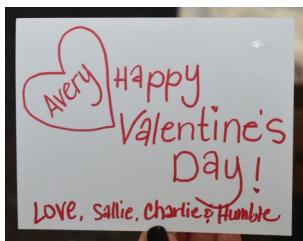 Avery
Happy
Valentine's
Day!
Love, Sallie, Charlie & Humble